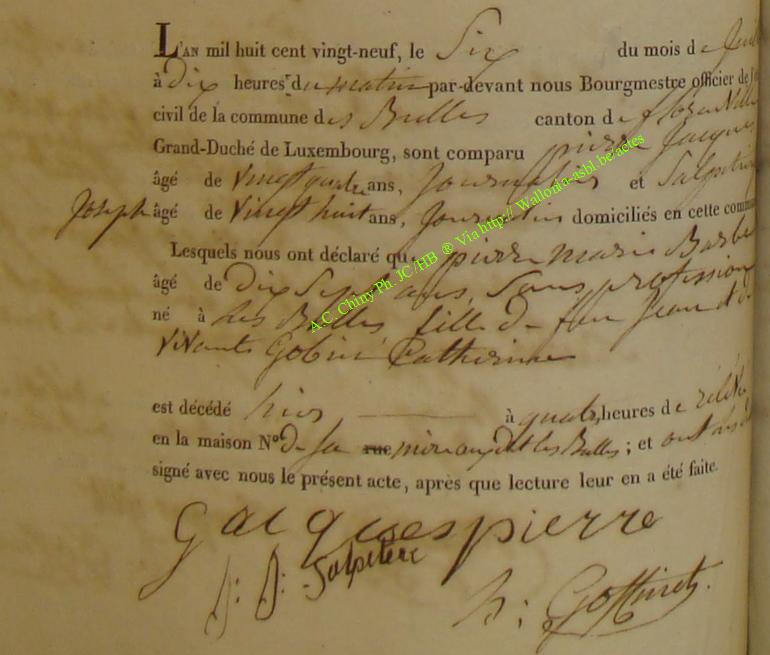 L'AN mil huit cent vingt-neuf, le Six du mois de
à Dix heures du matin par-devant nous Bourgmestre officier de
civil de la commune des Bulles canton de florenville
Grand-Duché de Luxembourg, sont comparu pierre Jacques
âgé de Vingt quatre ans, Journalier et Salpeteur
Joseph âgé de Vingt huit ans, Journalier domiciliés en cette commune
Lesquels nous ont déclaré que pierre marie Barbe
âgé de Dix Sept ans, Sans profession
né à Les Bulles fille de feu Jean et de
vivante Gobin Catherine
est décédé hier à quatre heures de
en la maison N° de sa rue mère audit les Bulles; et ont
signé avec nous le présent acte, après que lecture leur en a été faite.
Jacques pierre
J: J: Salpeteur
h: Goffinet.
A.C. Chiny Ph. JC/HB ® Via http:// Wallonia-asbl.be/actes